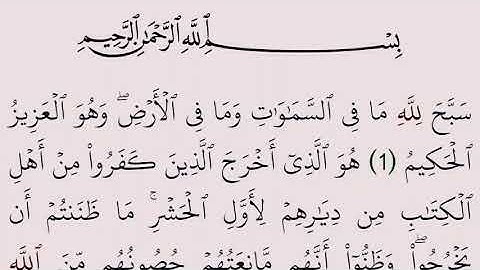 بِسْمِ ٱللَّهِ ٱلرَّحْمَٰنِ ٱلرَّحِيمِ
سَبَّحَ لِلَّهِ مَا فِي ٱلسَّمَٰوَٰتِ وَمَا فِي ٱلْأَرْضِۖ وَهُوَ ٱلْعَزِيزُ
ٱلْحَكِيمُ (1) هُوَ ٱلَّذِيٓ أَخْرَجَ ٱلَّذِينَ كَفَرُواْ مِنْ أَهْلِ
ٱلْكِتَٰبِ مِن دِيَٰرِهِمْ لِأَوَّلِ ٱلْحَشْرِۚ مَا ظَنَنتُمْ أَن
يَخْرُجُواْۖ وَظَنُّوٓاْ أَنَّهُم مَّانِعَتُهُمْ حُصُونُهُم مِّنَ ٱللَّهِ